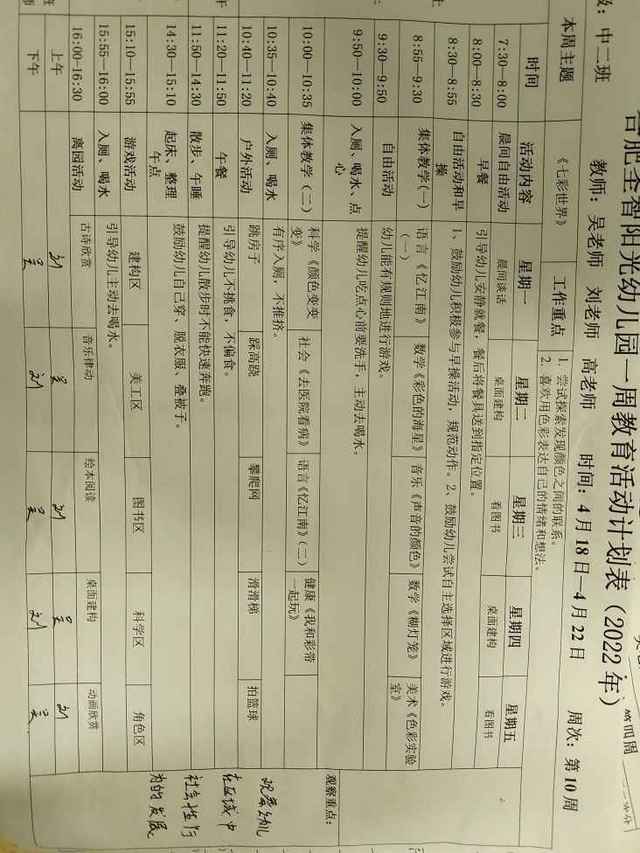 合肥圣智阳光幼儿园一周教育活动计划表（2022 年）
级：中二班 教师：吴老师 刘老师 高老师 时间：4 月 18 日—4 月 22 日 周次：第 10 周
本周主题 《七彩世界》 工作重点 1．尝试探索发现颜色之间的联系。
2．喜欢用色彩表达自己的情绪和想法、
时间 活动内容 星期一 星期二 星期三 星期四 星期五
7:30—8:00 晨间自由活动 晨间谈话 桌面建构 看图书 桌面建构 看图书
8:00—8:30 早餐 引导幼儿安静就餐，餐后将餐具送到指定位置。
8:30—8:55 自由活动和早操 1、鼓励幼儿积极参与早操活动，规范动作。2、鼓励幼儿尝试自主选择区域进行游戏。
8:55—9:30 集体教学(一) 语言《忆江南》（一） 数学《彩色的海星》 音乐《声音的颜色》 数学《糊灯笼》 美术《色彩实验室》
9:30—9:50 自由活动 幼儿能有规则地进行游戏。
9:50—10:00 入厕、喝水、点心 提醒幼儿吃点心前要洗手，主动去喝水。
10:00—10:35 集体教学（二） 科学《颜色变变变》 社会《去医院看病》 语言《忆江南》（二） 健康《我和彩带一起玩》
10:35—10:40 入厕、喝水 有序入厕，不推挤。
10:40—11:20 户外活动 跳房子 踩高跷 攀爬网 滑滑梯 拍篮球
11:20—11:50 午餐 引导幼儿不挑食，不偏食。
11:50—14:30 散步、午睡 提醒幼儿散步时不能快速奔跑。
14:30—15:10 起床、整理午点 鼓励幼儿自己穿、脱衣服、叠被子。
15:10—15:55 游戏活动 建构区 美工区 图书区 科学区 角色区
15:55—16:00 入厕、喝水 引导幼儿主动去喝水。
16:00-16:30 离园活动 古诗欣赏 音乐律动 绘本阅读 桌面建构 动画欣赏
上午 刘 吴 刘 吴 刘
下午 吴 刘 吴 刘 吴
观察重点：
观察幼儿
在区域中
社会性行
为的发展